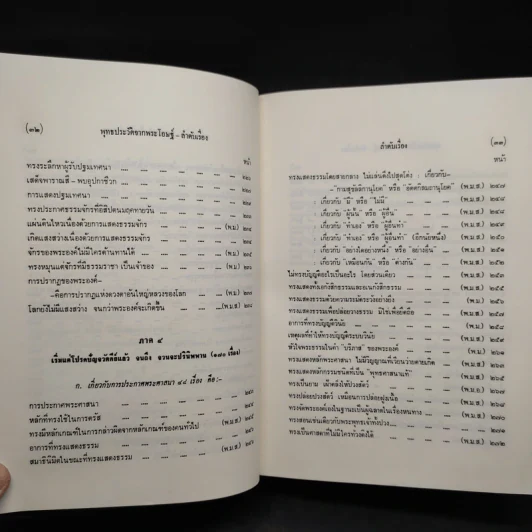 (๓๒)
พุทธประวัติจากพระโอษฐ์ - ลำดับเรื่อง
หน้า
ทรงระลึกหาผู้รับปฐมเทศนา
เสด็จพาราณสี - พบอุปกาชีวก
การแสดงปฐมเทศนา
ทรงประกาศธรรมจักรที่อิสิปตนมฤคทายวัน
แผ่นดินไหวเนื่องด้วยการแสดงธรรมจักร (พ.ม.)
เกิดแสงสว่างเนื่องด้วยการแสดงธรรมจักร
จักรของพระองค์ไม่มีใครต้านทานได้ (พ.ม.)
ทรงหมุนแต่จักรที่มีธรรมราชา เป็นเจ้าของ
การปรากฏของพระองค์-
-คือการปรากฏแห่งดวงตาอันใหญ่หลวงของโลก (พ.ม.)
โลกยังไม่มีแสงสว่าง จนกว่าพระองค์จะเกิดขึ้น (พ.ม.ส.)
ภาค ๔
เริ่มแต่โปรดปัญจวัคคีย์แล้ว จนถึง จวนจะปรินิพพาน
ก. เกี่ยวกับการประกาศพระศาสนา ๔๔ เรื่อง คือ:-
การประกาศพระศาสนา
หลักที่ทรงใช้ในการตรัส (พ.ม.ส.)
ทรงมีหลักเกณฑ์ในการกล่าวผิดจากหลักเกณฑ์ของคนทั่วไป
อาการที่ทรงแสดงธรรม
สมาธินิมิตในขณะที่ทรงแสดงธรรม
ลำดับเรื่อง
(๓๓)
หน้า
ทรงแสดงธรรมโดยสายกลาง ไม่แล่นดิ่งไปสุดโต่ง : เกี่ยวกับ-
-"กามสุขัลลิกานุโยค" หรือ "อัตตกิลมถานุโยค" (พ.ม.ส.)
: เกี่ยวกับ "มี" หรือ "ไม่มี" (พ.ม.ส.)
: เกี่ยวกับ "ผู้นั้น" หรือ "ผู้อื่น" (พ.ม.ส.)
: เกี่ยวกับ "ทำเอง" หรือ "ผู้อื่นทำ" (พ.ม.ส.)
: เกี่ยวกับ "ทำเอง" หรือ "ผู้อื่นทำ" (อีกนัยหนึ่ง) (พ.ม.ส.)
: เกี่ยวกับ "อย่างใดอย่างหนึ่ง" หรือ "อย่างอื่น" (พ.ม.ส.)
: เกี่ยวกับ "เหมือนกัน" หรือ "ต่างกัน" (พ.ม.ส.)
ไม่ทรงบัญญัติอะไรเป็นอะไร โดยส่วนเดียว (พ.ม.ส.)
ทรงแสดงทั้งเอกังสิกธรรมและอเนกังสิกธรรม (พ.ม.ส.)
ทรงแสดงธรรมด้วยความระมัดระวังอย่างยิ่ง
ทรงแสดงธรรมเพื่อปล่อยวางธรรม มิใช่เพื่อยึดถือ (พ.ม.ส.)
อาการที่ทรงบัญญัติวินัย
เหตุผลที่ทำให้ทรงบัญญัติระบบวินัย (พ.ม.ส.)
หัวใจพระธรรมในคำ "บริภาส" ของพระองค์
ทรงแสดงหลักพระศาสนา ไม่มีวิญญาณที่เวียนว่ายตายเกิด
ทรงแสดงหลักกรรมชนิดที่เป็น "พุทธศาสนาแท้" (พ.ม.ส.)
ทรงเป็นยาม เฝ้าตลิ่งให้ปวงสัตว์
ทรงปล่อยปวงสัตว์ เหมือนการปล่อยฝูงเนื้อ
ทรงจัดพระองค์เองในฐานะเป็นผู้ฉลาดในเรื่องหนทาง (พ.ม.ส.)
ทรงสอนเช่นเดียวกับพระพุทธเจ้าทั้งปวง
ทรงเป็นศาสดาที่ไม่มีใครท้วงติงได้ (พ.ม.ส.)